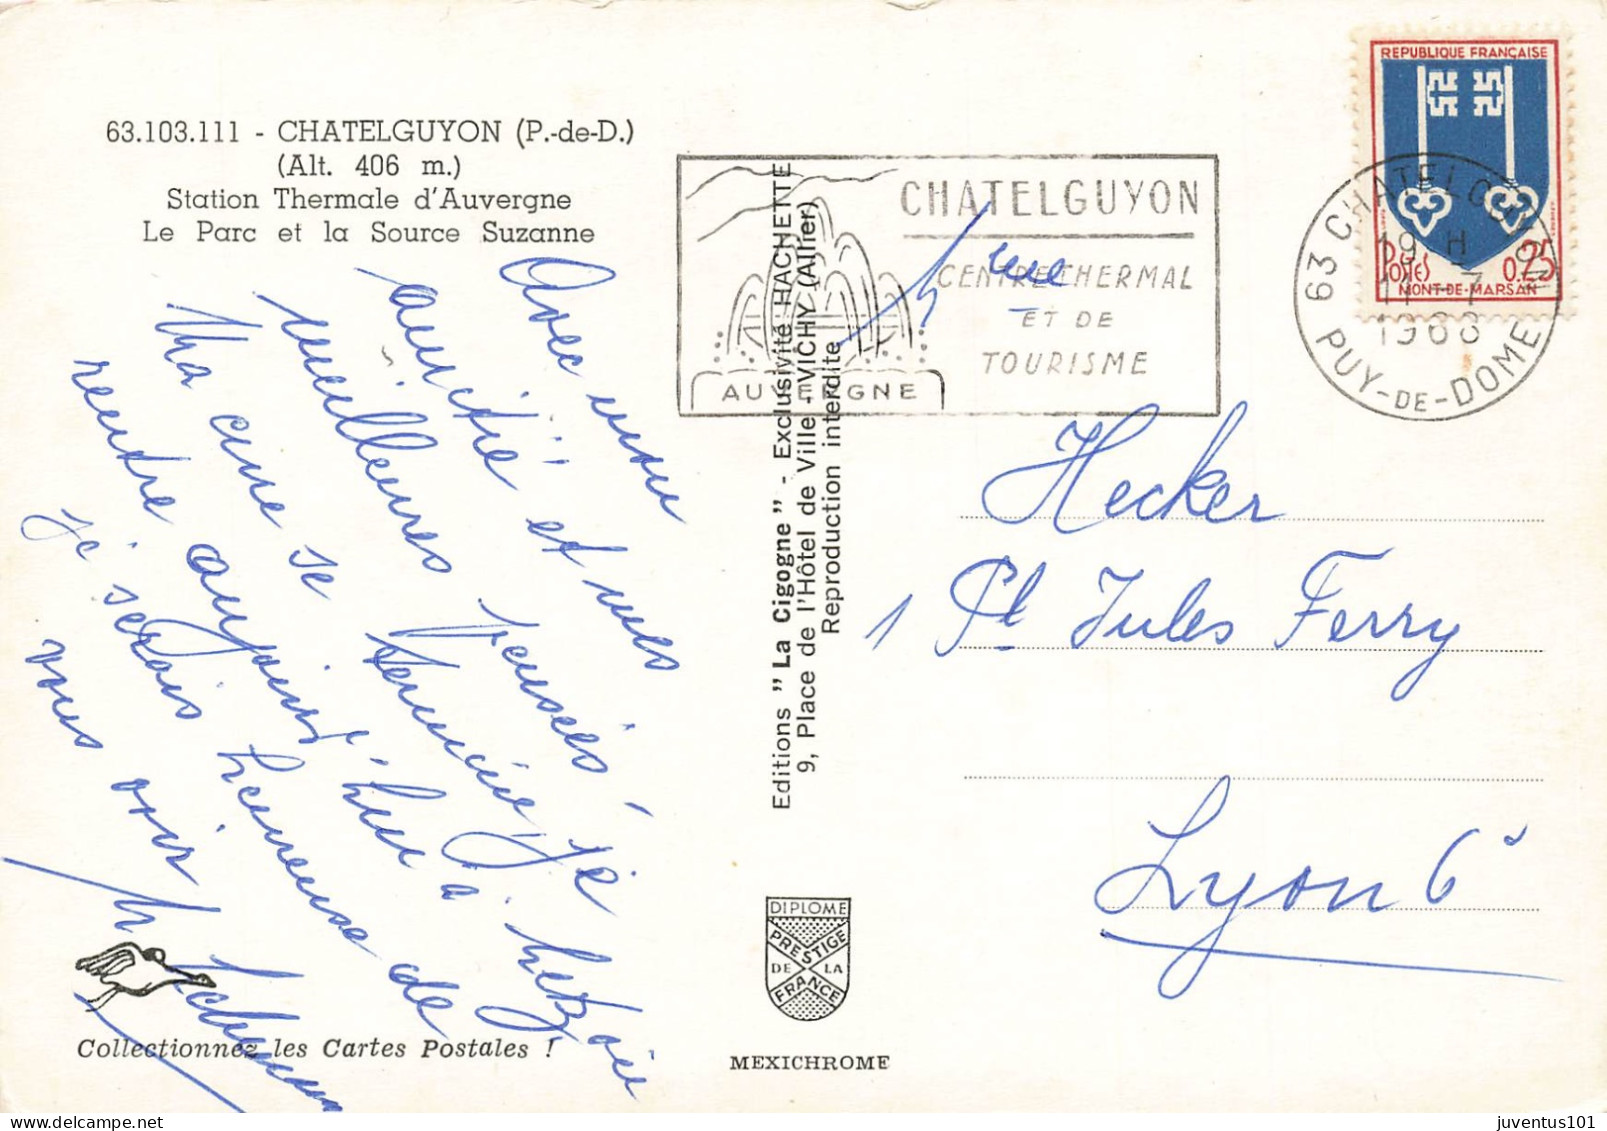 63.103.111 - CHATELGUYON (P.-de-D.)
(Alt. 406 m.)
Station Thermale d'Auvergne
Le Parc et la Source Suzanne
Avec mon
amitié et mes
meilleures pensées
Ma cure se termine, je
rentre aujourd'hui à
je serais heureuse de
vous voir
Collectionnez les Cartes Postales !
Editions " La Cigogne " - Exclusivité HACHETTE
9, Place de l'Hôtel de Ville - VICHY (Allier)
Reproduction interdite
DIPLOME
PRESTIGE
DE LA
FRANCE
MEXICHROME
CHATELGUYON
CENTRE THERMAL
ET DE
TOURISME
AUVERGNE
REPUBLIQUE FRANÇAISE
POSTES 0.25
MONT-DE-MARSAN
63 CHATELGUYON
19 H
11-7
1968
PUY-DE-DOME
Mme
Hecker
1 Pl Jules Ferry
Lyon 6e
juventus101